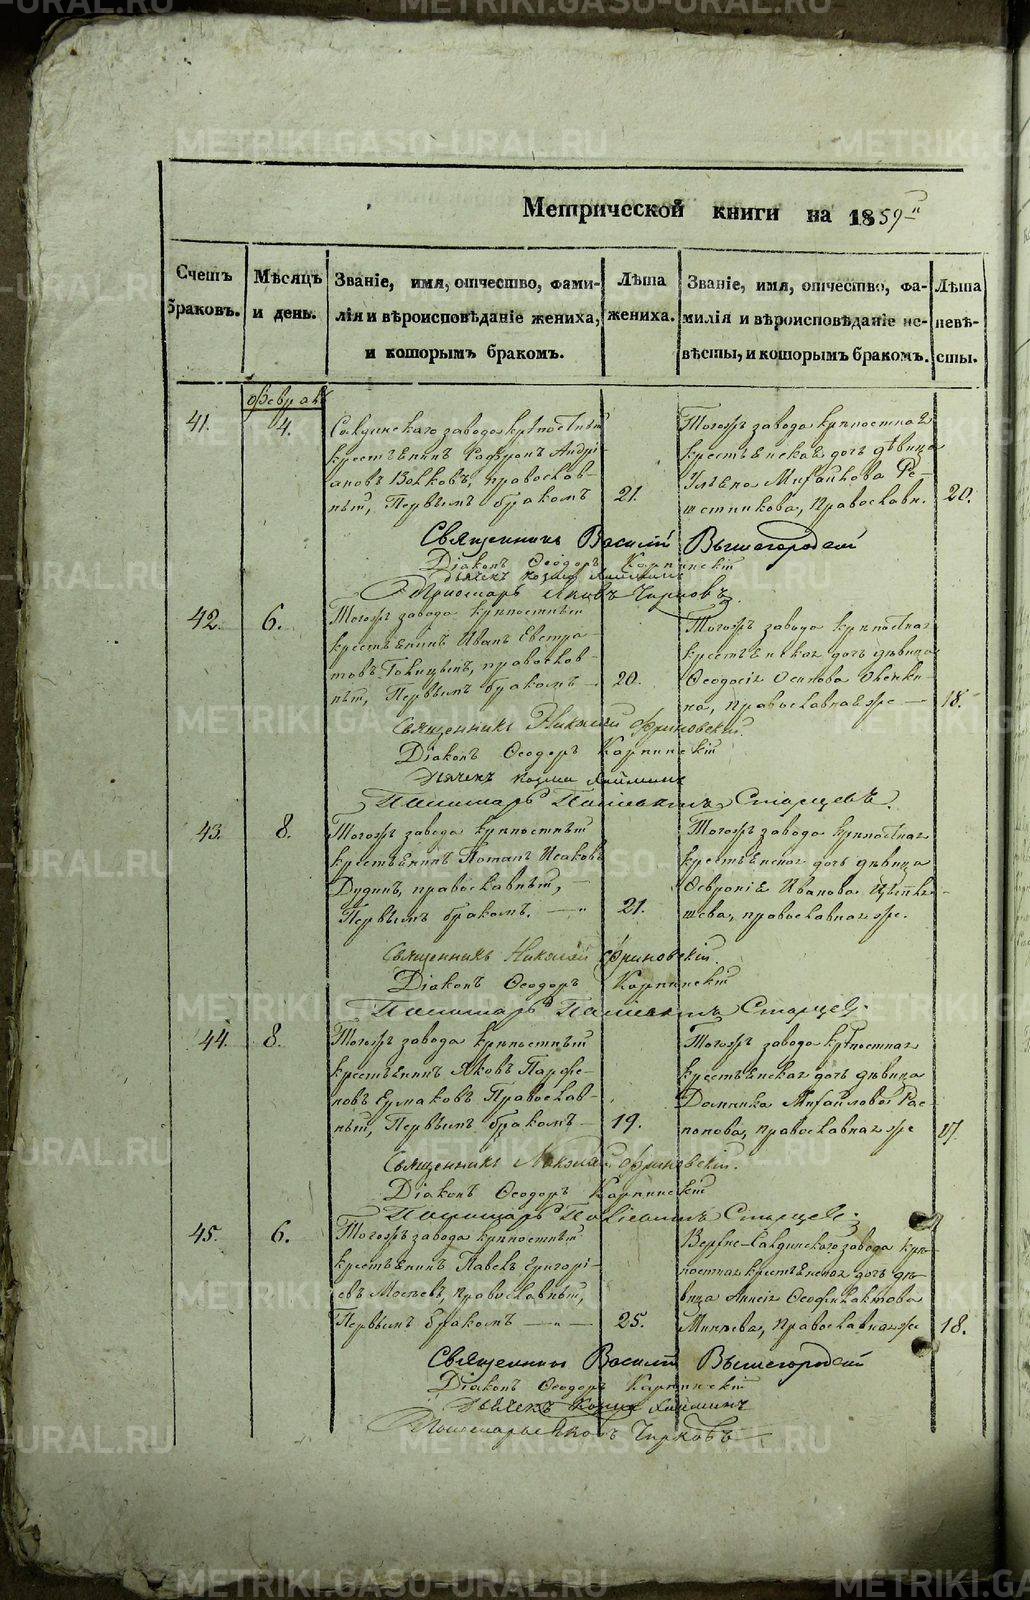 METRIKI.GASO-URAL.RU
Метрической книги на 1859й
Счетъ браковъ.
Мѣсяцъ и день.
Званіе, имя, отчество, фами-
лія и вѣроисповѣданіе жениха,
и которымъ бракомъ.
Лѣта жениха.
Званіе, имя, отчество, фа-
милія и вѣроисповѣданіе не-
вѣсты, и которымъ бракомъ.
Лѣта невѣ-
сты.
Февраль
41.
4.
Салдинскаго завода крѣпостный
крестьянинъ Андрі-
ановъ Волковъ, православ-
ный, Первымъ бракомъ
21.
Тогожъ завода крѣпостная
крестьянская дочь дѣвица
Ульяна Михайлова Ре-
шетникова, Православн.
20.
Священникъ Василій Вышегородскій
Діаконъ Ѳеодоръ Карпинскій
Дьячекъ Козма
Пономарь Яковъ Чирковъ.
42.
6.
Тогожъ завода крѣпостный
крестьянинъ Иванъ Евстра-
товъ православ-
ный, Первымъ бракомъ
20.
Тогожъ завода крѣпостная
крестьянская дочь дѣвица
Ѳеодосія Осипова
на, православная же
18.
Священникъ Николай
Діаконъ Ѳеодоръ Карпинскій
Дьячекъ Козма
Пономарь Старцевъ.
43.
8.
Тогожъ завода крѣпостный
крестьянинъ Потапъ Исаковъ
Дудинъ, православный,
Первымъ бракомъ.
21.
Тогожъ завода крѣпостная
крестьянская дочь дѣвица
Ѳевронія Иванова
шева, православная же.
Священникъ Николай
Діаконъ Ѳеодоръ Карпинскій
Пономарь Старцевъ.
44.
8.
Тогожъ завода крѣпостный
крестьянинъ Яковъ Парфе-
новъ Ермаковъ Православ-
ный, Первымъ бракомъ
19.
Тогожъ завода крѣпостная
крестьянская дочь дѣвица
Домника Михайлова Рас-
попова, православная же
17.
Священникъ Николай
Діаконъ Ѳеодоръ Карпинскій
Пономарь Старцевъ.
45.
6.
Тогожъ завода крѣпостный
крестьянинъ Павелъ Григорі-
евъ Православный,
Первымъ бракомъ
25.
Верхне-Салдинскаго завода крѣ-
постная крестьянская дочь дѣ-
вица Анисія Ѳеофилактова
Минѣева, Православная же
18.
Священникъ Василій Вышегородскій
Діаконъ Ѳеодоръ Карпинскій
Дьячекъ Козма
Пономарь Яковъ Чирковъ